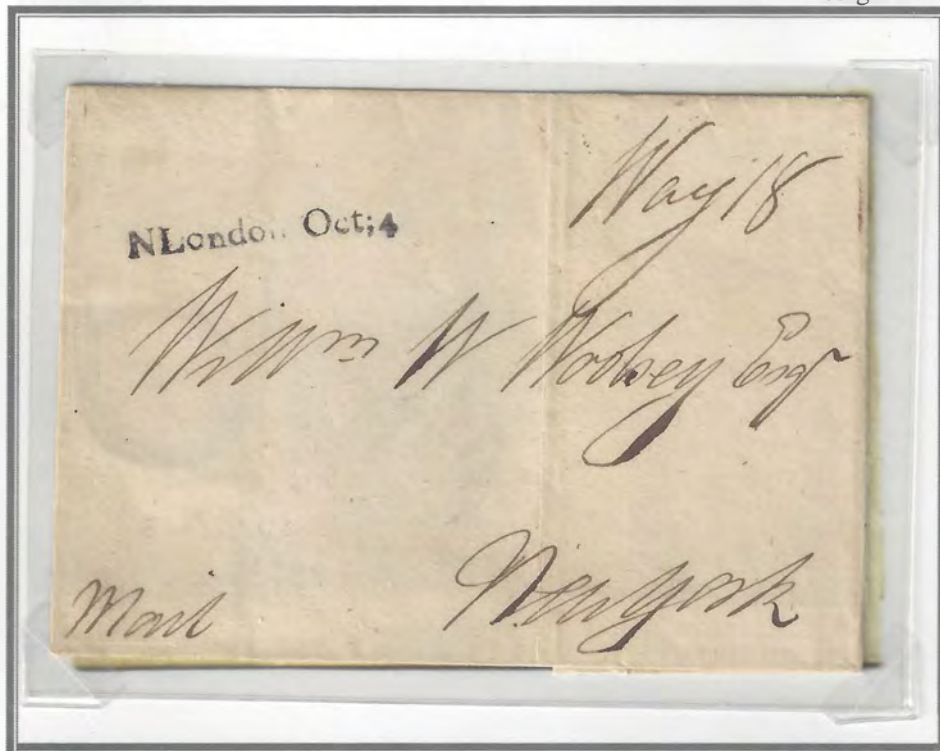 Way 18
NLondon Oct;4
Willm W Woolsey Esqr
New York
Mail